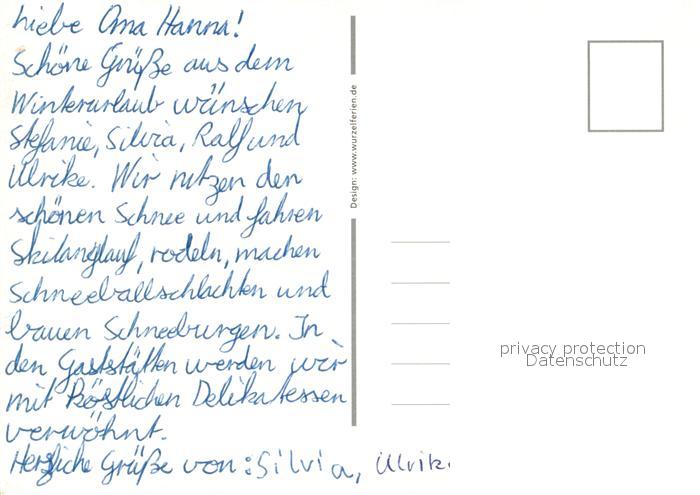 Liebe Oma Hanna!
Schöne Grüße aus dem
Winterurlaub wünschen
Stefanie, Silvia, Ralf und
Ulrike. Wir nutzen den
schönen Schnee und fahren
Skilanglauf, rodeln, machen
Schneeballschlachten und
bauen Schneeburgen. In
den Gaststätten werden wir
mit köstlichen Delikatessen
verwöhnt.
Herzliche Grüße von: Silvia, Ulrik
Design: www.wurzelferien.de
privacy protection
Datenschutz